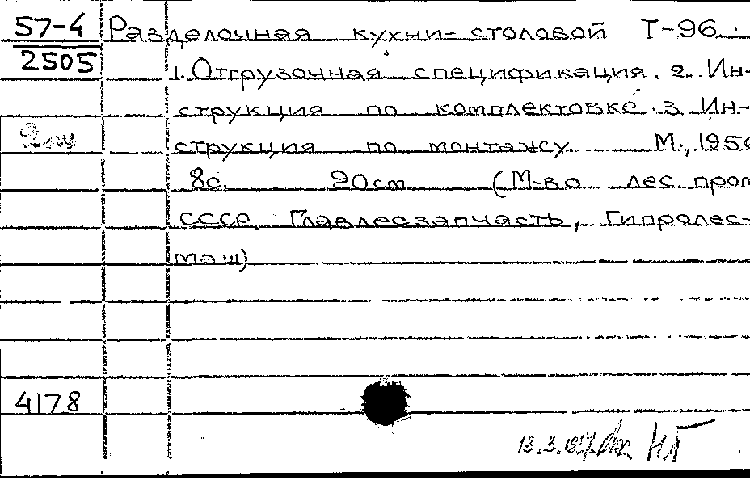 57-4 Разделочная кухни-столовой Т-96.
2505 1. Отгрузочная спецификация. 2. Ин-
струкция по комплектовке. 3. Ин-
струкция по монтажу М., 195
8с. 20см (М-во лес. пром
СССР. Главлесзапчасть, Гипролес-
маш)
4178
НГ